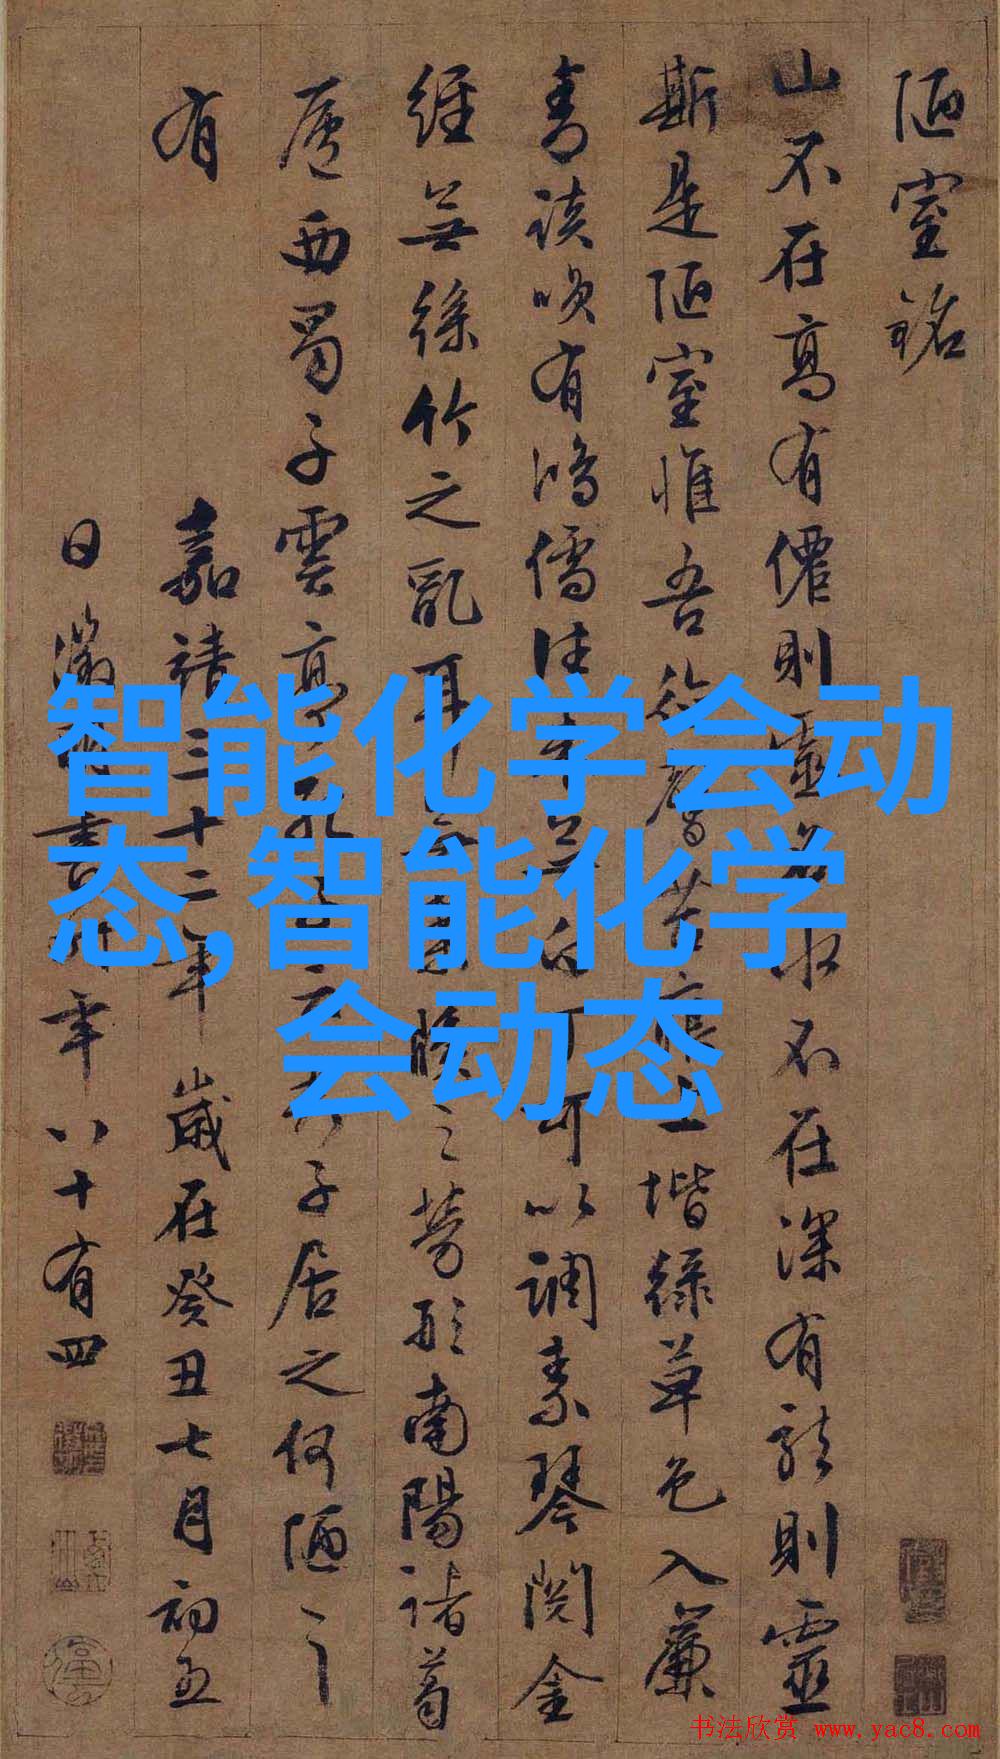 陋室銘
山不在高有僊則名水不在深有龍則靈
斯是陋室惟吾德馨苔痕上堦綠草色入簾
青談咲有鴻儒往来無白丁可以調素琴閱金
經無絲竹之亂耳無案牘之勞形南陽諸葛
廬西蜀子雲亭孔子云君子居之何陋之
有
嘉靖三十二年歲在癸丑七月初五
日徵明書時年八十有四
智能化学会动
态,智能化学
会动态
书法欣赏 www.yac8.com